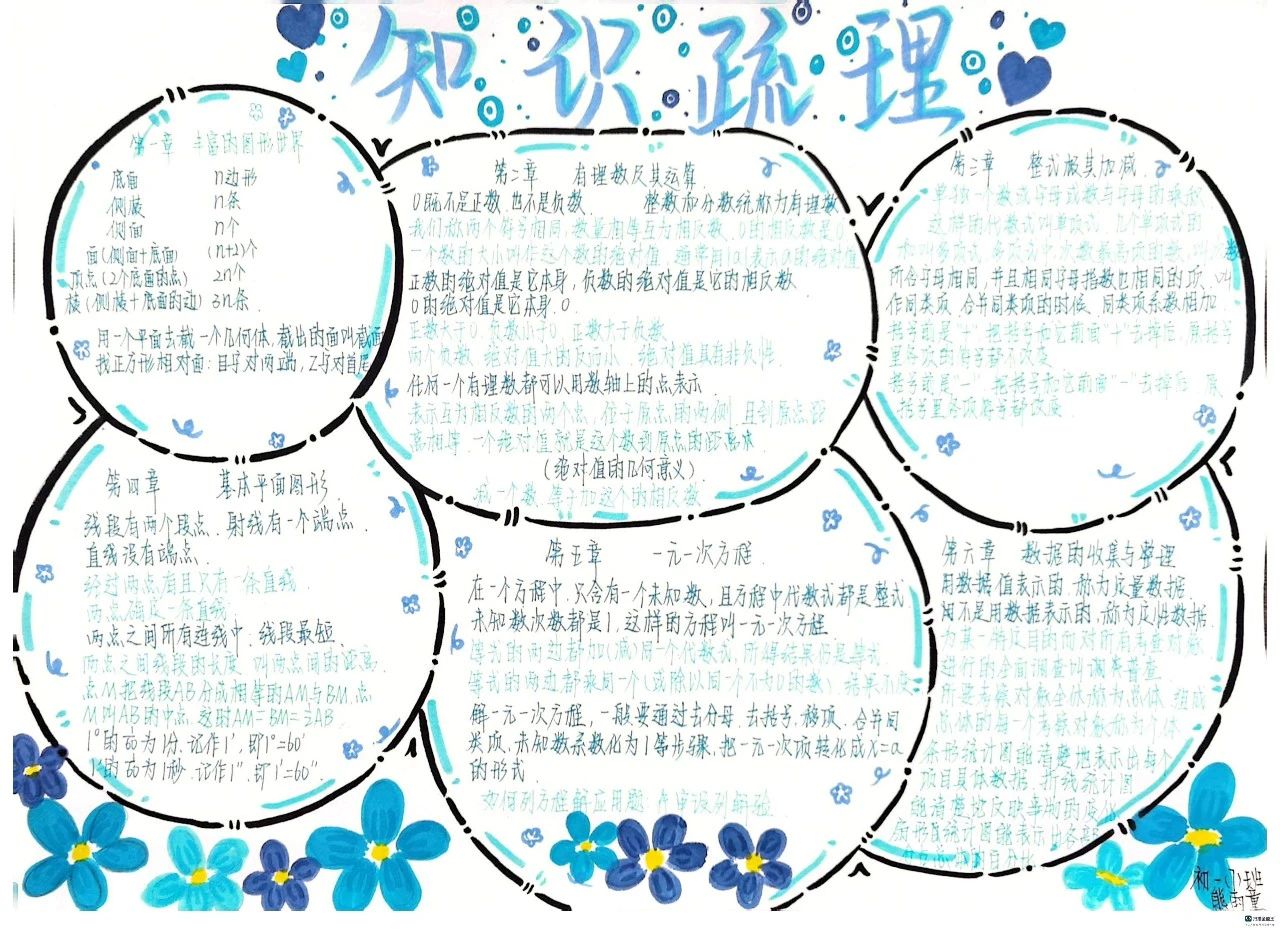 知识疏理
第一章 丰富的图形世界
底面 n边形
侧棱 n条
侧面 n个
面(侧面+底面) (n+2)个
顶点(2个底面的点) 2n个
棱(侧棱+底面的边) 3n条
用一个平面去截一个几何体,截出的面叫截面
找正方形相对面:目字对两端,Z字对首尾
第二章 有理数及其运算
0既不是正数,也不是负数. 整数和分数统称为有理数
我们称两个符号相同,数量相等互为相反数,0的相反数是0
一个数的大小叫作这个数的绝对值,通常用|a|表示a的绝对值
正数的绝对值是它本身,负数的绝对值是它的相反数
0的绝对值是它本身0
正数大于0,负数小于0,正数大于负数
两个负数,绝对值大的反而小,绝对值具有非负性.
任何一个有理数都可以用数轴上的点表示
表示互为相反数的两个点,位于原点的两侧,且到原点距
离相等,一个绝对值就是这个数到原点的距离
(绝对值的几何意义)
减一个数,等于加这个的相反数
第三章 整式极其加减
单独一个数或字母或数与字母的乘积
这样的代数式叫单项式,几个单项式的
和叫多项式,多项式中,次数最高项的数,叫次数
所含字母相同,并且相同字母指数也相同的项,叫
作同类项,合并同类项的时候,同类项系数相加
括号前是"+",把括号和它前面"+"去掉后,原括号
里各项的符号都不改变
括号前是"-",把括号和它前面"-"去掉后,原
括号里各项符号都改变
第四章 基本平面图形
线段有两个段点.射线有一个端点.
直线没有端点.
经过两点有且只有一条直线.
两点确定一条直线.
两点之间所有连线中,线段最短.
两点之间线段的长度,叫两点间的距离.
点M把线段AB分成相等的AM与BM,点
M叫AB的中点,这时AM=BM=½AB.
1°的1/60为1分,记作1′,即1°=60′
1′的1/60为1秒.记作1″.即1′=60″.
第五章 一元一次方程
在一个方程中,只含有一个未知数,且方程中代数式都是整式
未知数次数都是1,这样的方程叫一元一次方程
等式的两边都加(减)同一个代数式,所得结果仍是等式
等式的两边都乘同一个(或除以同一个不为0的数),结果不变
解一元一次方程,一般要通过去分母,去括号,移项,合并同
类项,未知数系数化为1等步骤,把一元一次项转化成x=a
的形式
如何列方程解应用题:审设列解验
第六章 数据的收集与整理
用数据值表示的,称为定量数据.
闲不是用数据表示的,称为定性数据.
为某一特定目的而对所有考查对象
进行的全面调查叫调察普查
所要考察对象全体称为总体,组成
总体的每一个考察对象称为个体
条形统计图能清楚地表示出每个
项目具体数据,折线统计图
能清楚地反映事物的变化
扇形直统计图能表示出各部
百分比
初一(1)班
熊雨童